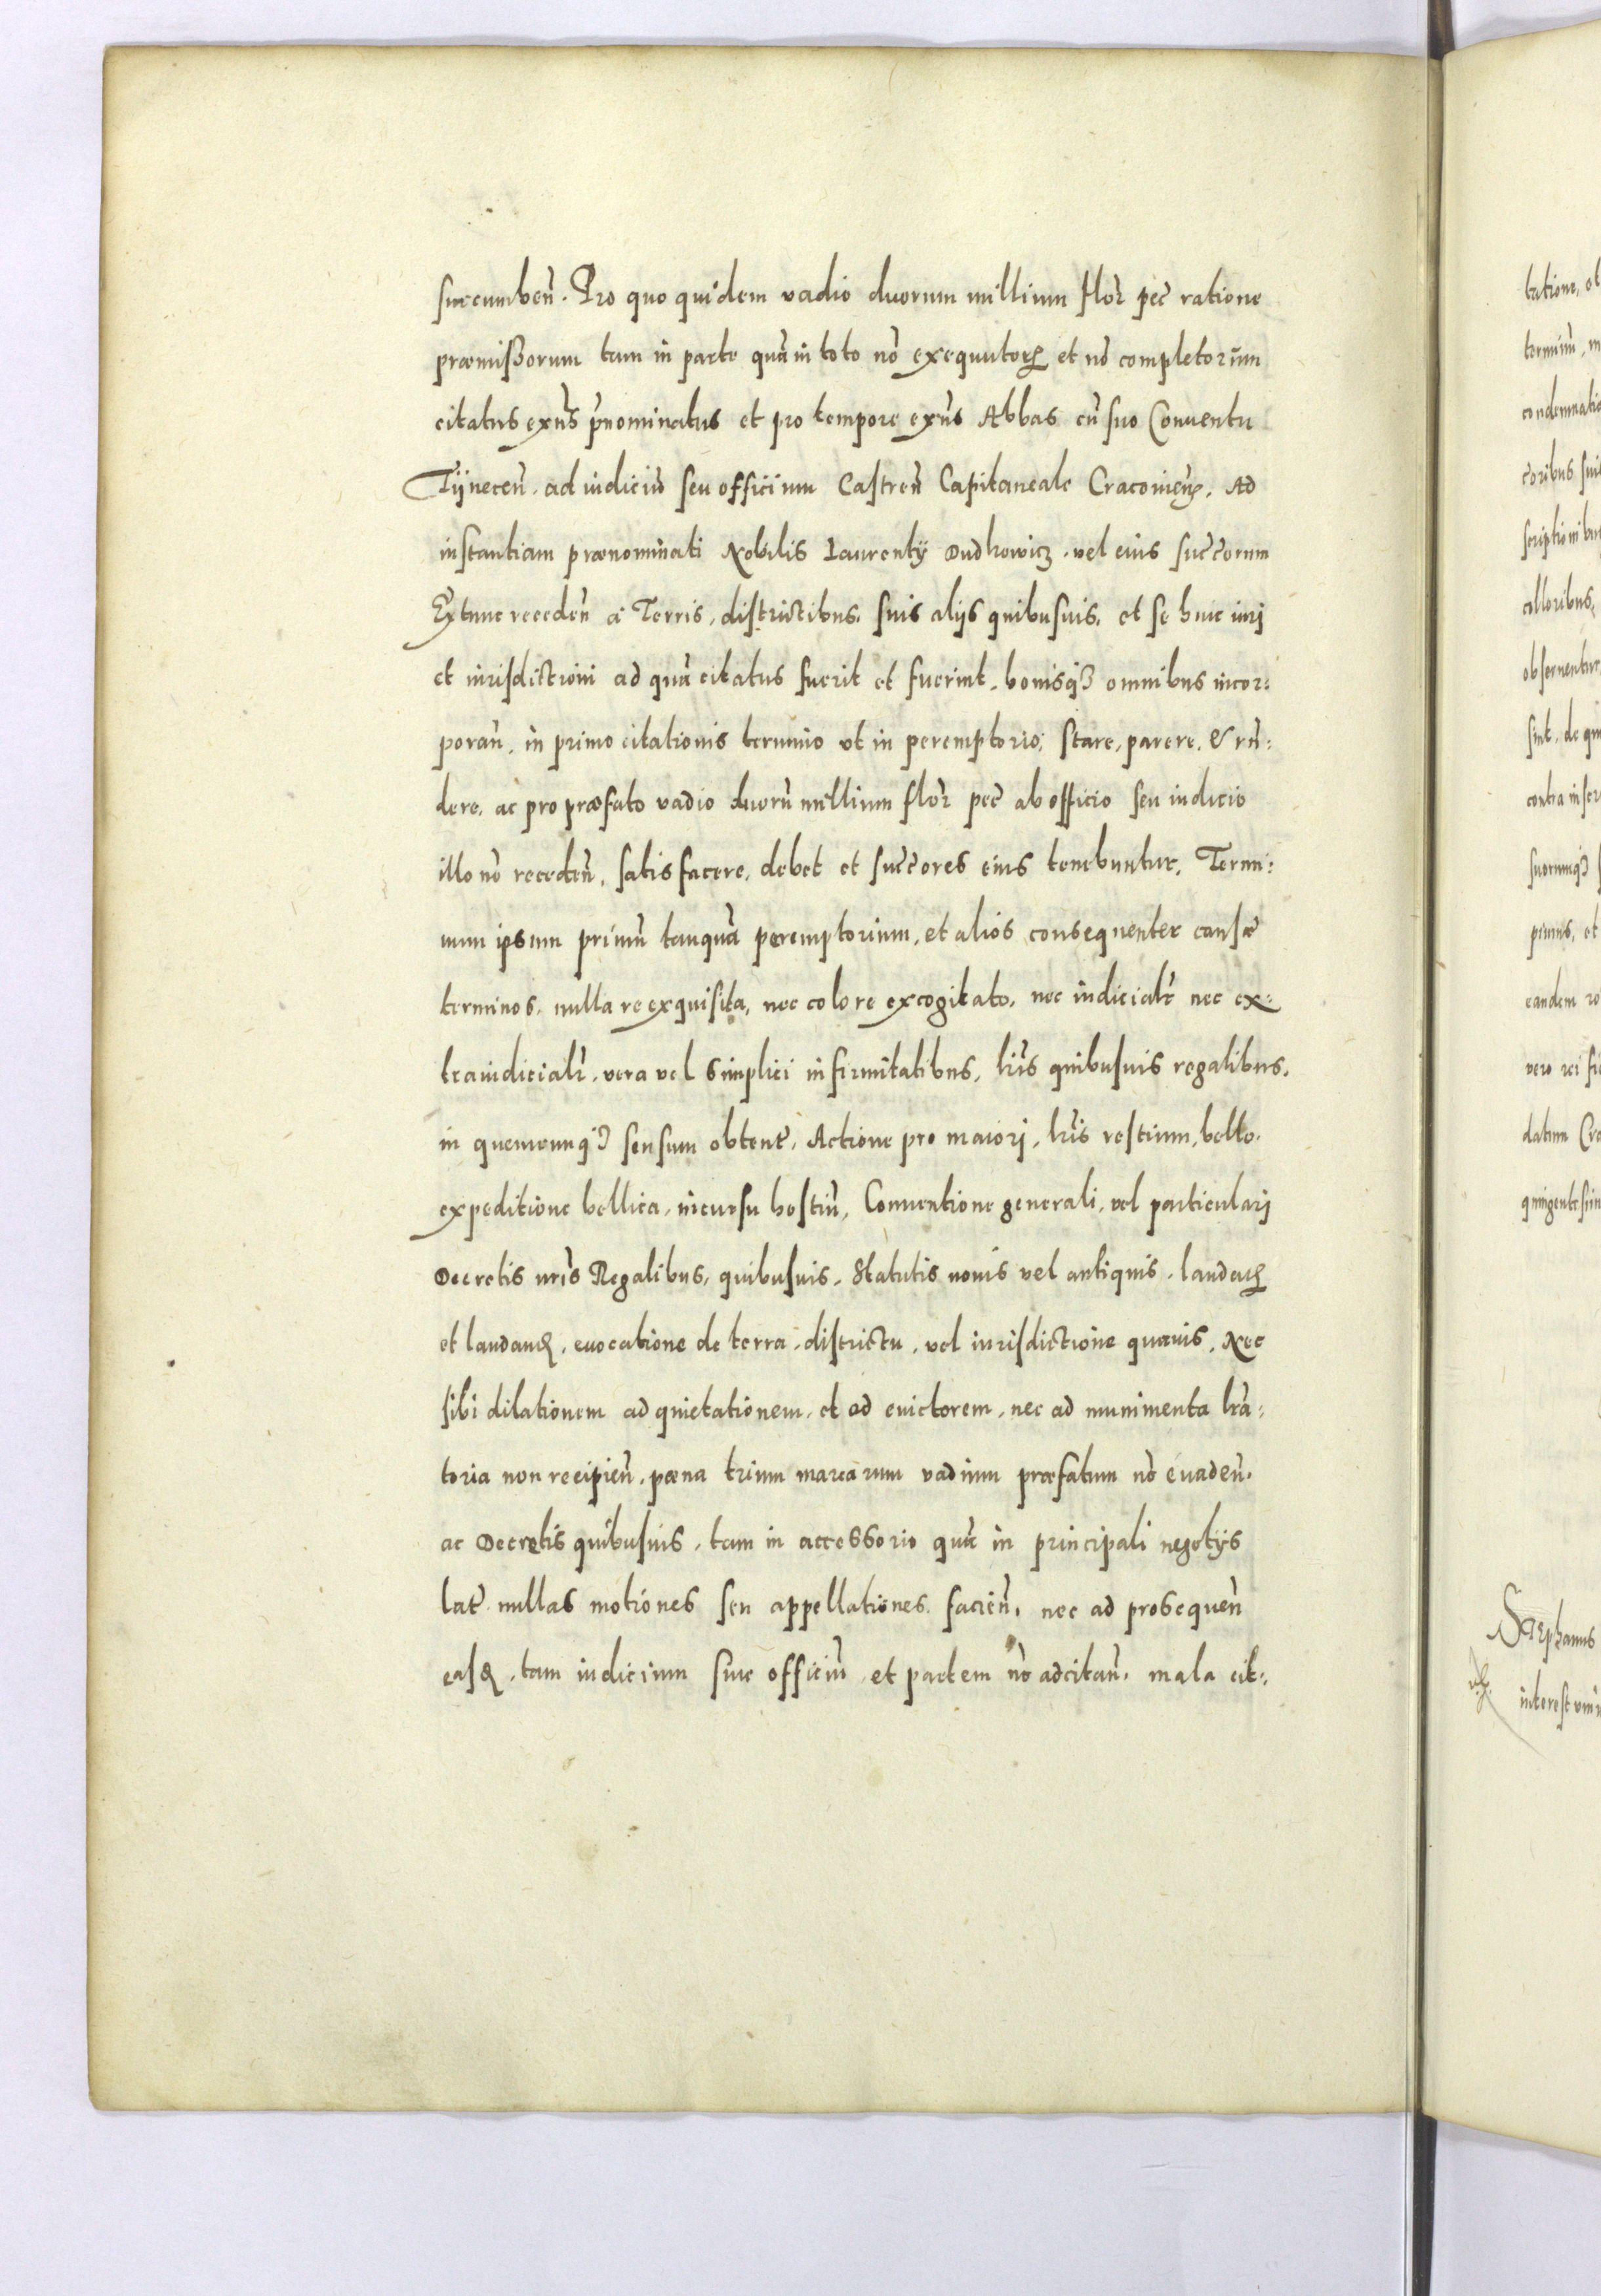 succumbeñ. Pro quo quidem vadio duorum millium flor̃ pec̃ ratione
præmißorum tam in parte quã in toto nõ exequutorꝝ et nõ completorum
citatus exñs p̃nominatus et pro tempore exñs Abbas cũ suo Conuentu
Tÿneceñ. ad iudiciũ seu officium Castreñ Capitaneale Cracouieñ. Ad
instantiam prænominati Nobilis Laurentÿ Dudkowicz. vel eius succ̃orum
Extunc recedeñ a Terris, districtibus, suis alijs quibusuis, et se huic iurj
et iurisdictioni ad quã citatus fuerit et fuerint, bonisqꝫ omnibus incor:
porañ, in primo citationis termino vt in peremptorio, stare, parere, & rñ:
dere, ac pro præfato vadio duorũ millium flor̃ pec̃ ab officio seu iudicio
illo nõ recedeñ, satisfacere, debet et succ̃ores eius tenebuntur, Termi:
num ipsum primũ tanquã peremptorium, et alios consequenter causæ
terminos, nulla re exquisita, nec colore excogitato, nec iudicialr̃ nec ex:
traiudicialr̃, vera vel simplici infirmitatibus, lr̃is quibusuis regalibus,
in quemcunqꝫ sensum obtent̃, Actione pro maiorj, lr̃is restium, bello,
expeditione bellica, incursu hostiũ, Conuentione generali, vel particularj
Decretis nr̃is Regalibus, quibusuis, Statutis nouis vel antiquis, laudatꝝ
et laudanꝭ, euocatione de terra, districtu, vel iurisdictione quauis, Nec
sibi dilationem ad quietationem, et ad euictorem, nec ad munimenta lr̃a:
toria non recipieñ, pœna trium marcarum vadium præfatum nõ euadeñ,
ac Decretis quibusuis, tam in accessorio quã in principali negotÿs
lat̃ nullas motiones seu appellationes facieñ, nec ad prosequeñ
easꝭ, tam iudicium siue officiũ et partem nõ adcitañ, mala cit: